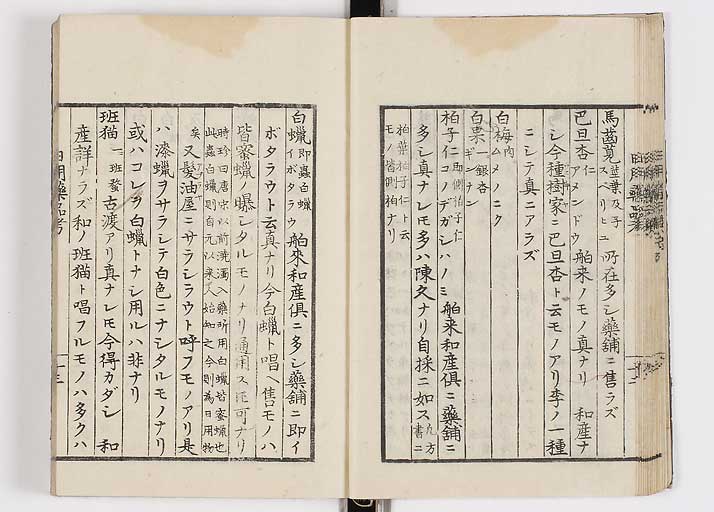 馬齒莧 莖葉及子 スベリヒユ 所在多シ藥舖ニ售ラズ
巴旦杏仁 アメンドウ 舶來ノモノ真ナリ 和産ナ
シ今種樹家ニ巴旦杏ト云モノアリ李ノ一種
ニシテ真ニアラズ
白梅肉 ムメノニク
白果 一銀杏 ギンナン
柏子仁 即側柏子仁 コノデガシハノミ 舶来和産俱ニ藥舖ニ
多シ真ナレモ多ハ陳久ナリ自採ニ如ス 凢方書ニ
柏葉柏子仁ト云
モノ皆側柏ナリ
白蠟 即蟲白蠟 イボタラウ 舶來和産俱ニ多シ藥舖ニ即イ
ボタラウト云真ナリ今白蠟ト唱ヘ售モノハ
皆蜜蠟ノ曝シタルモノナリ通用スルモ可ナリ
時珍曰唐宋以前澆濁入藥所用白蠟皆蜜蠟也
此蟲白蠟則自元以来人始知之今則為日用物
矣 又髮油屋ニサラシラウト呼フモノアリ是
ハ漆蠟ヲサラシテ白色ニナシタルモノナリ
或ハコレヲ白蠟トナシ用ルハ非ナリ
班猫 一班蝥 古渡アリ真ナレモ今得カダシ 和
産詳ナラズ和ノ班猫ト唱フルモノハ多クハ
日用藥品考
十三